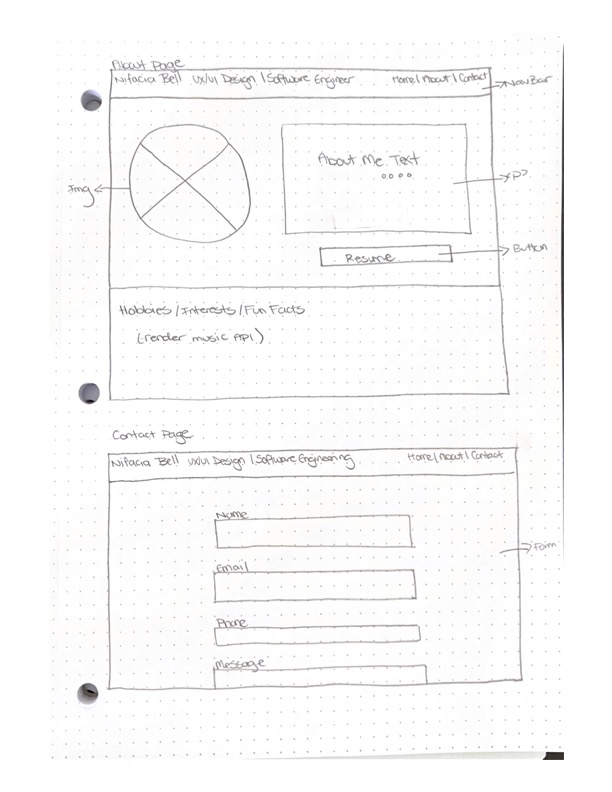 About Page
Nifacia Bell UX/UI Design | Software Engineer Home | About | Contact
NavBar
About Me Text
Img
<p>
Resume
Button
Hobbies / Interests / Fun Facts
(render music API)
Contact Page
Nifacia Bell UX/UI Design | Software Engineering Home | About | Contact
Name
Form
Email
Phone
Message